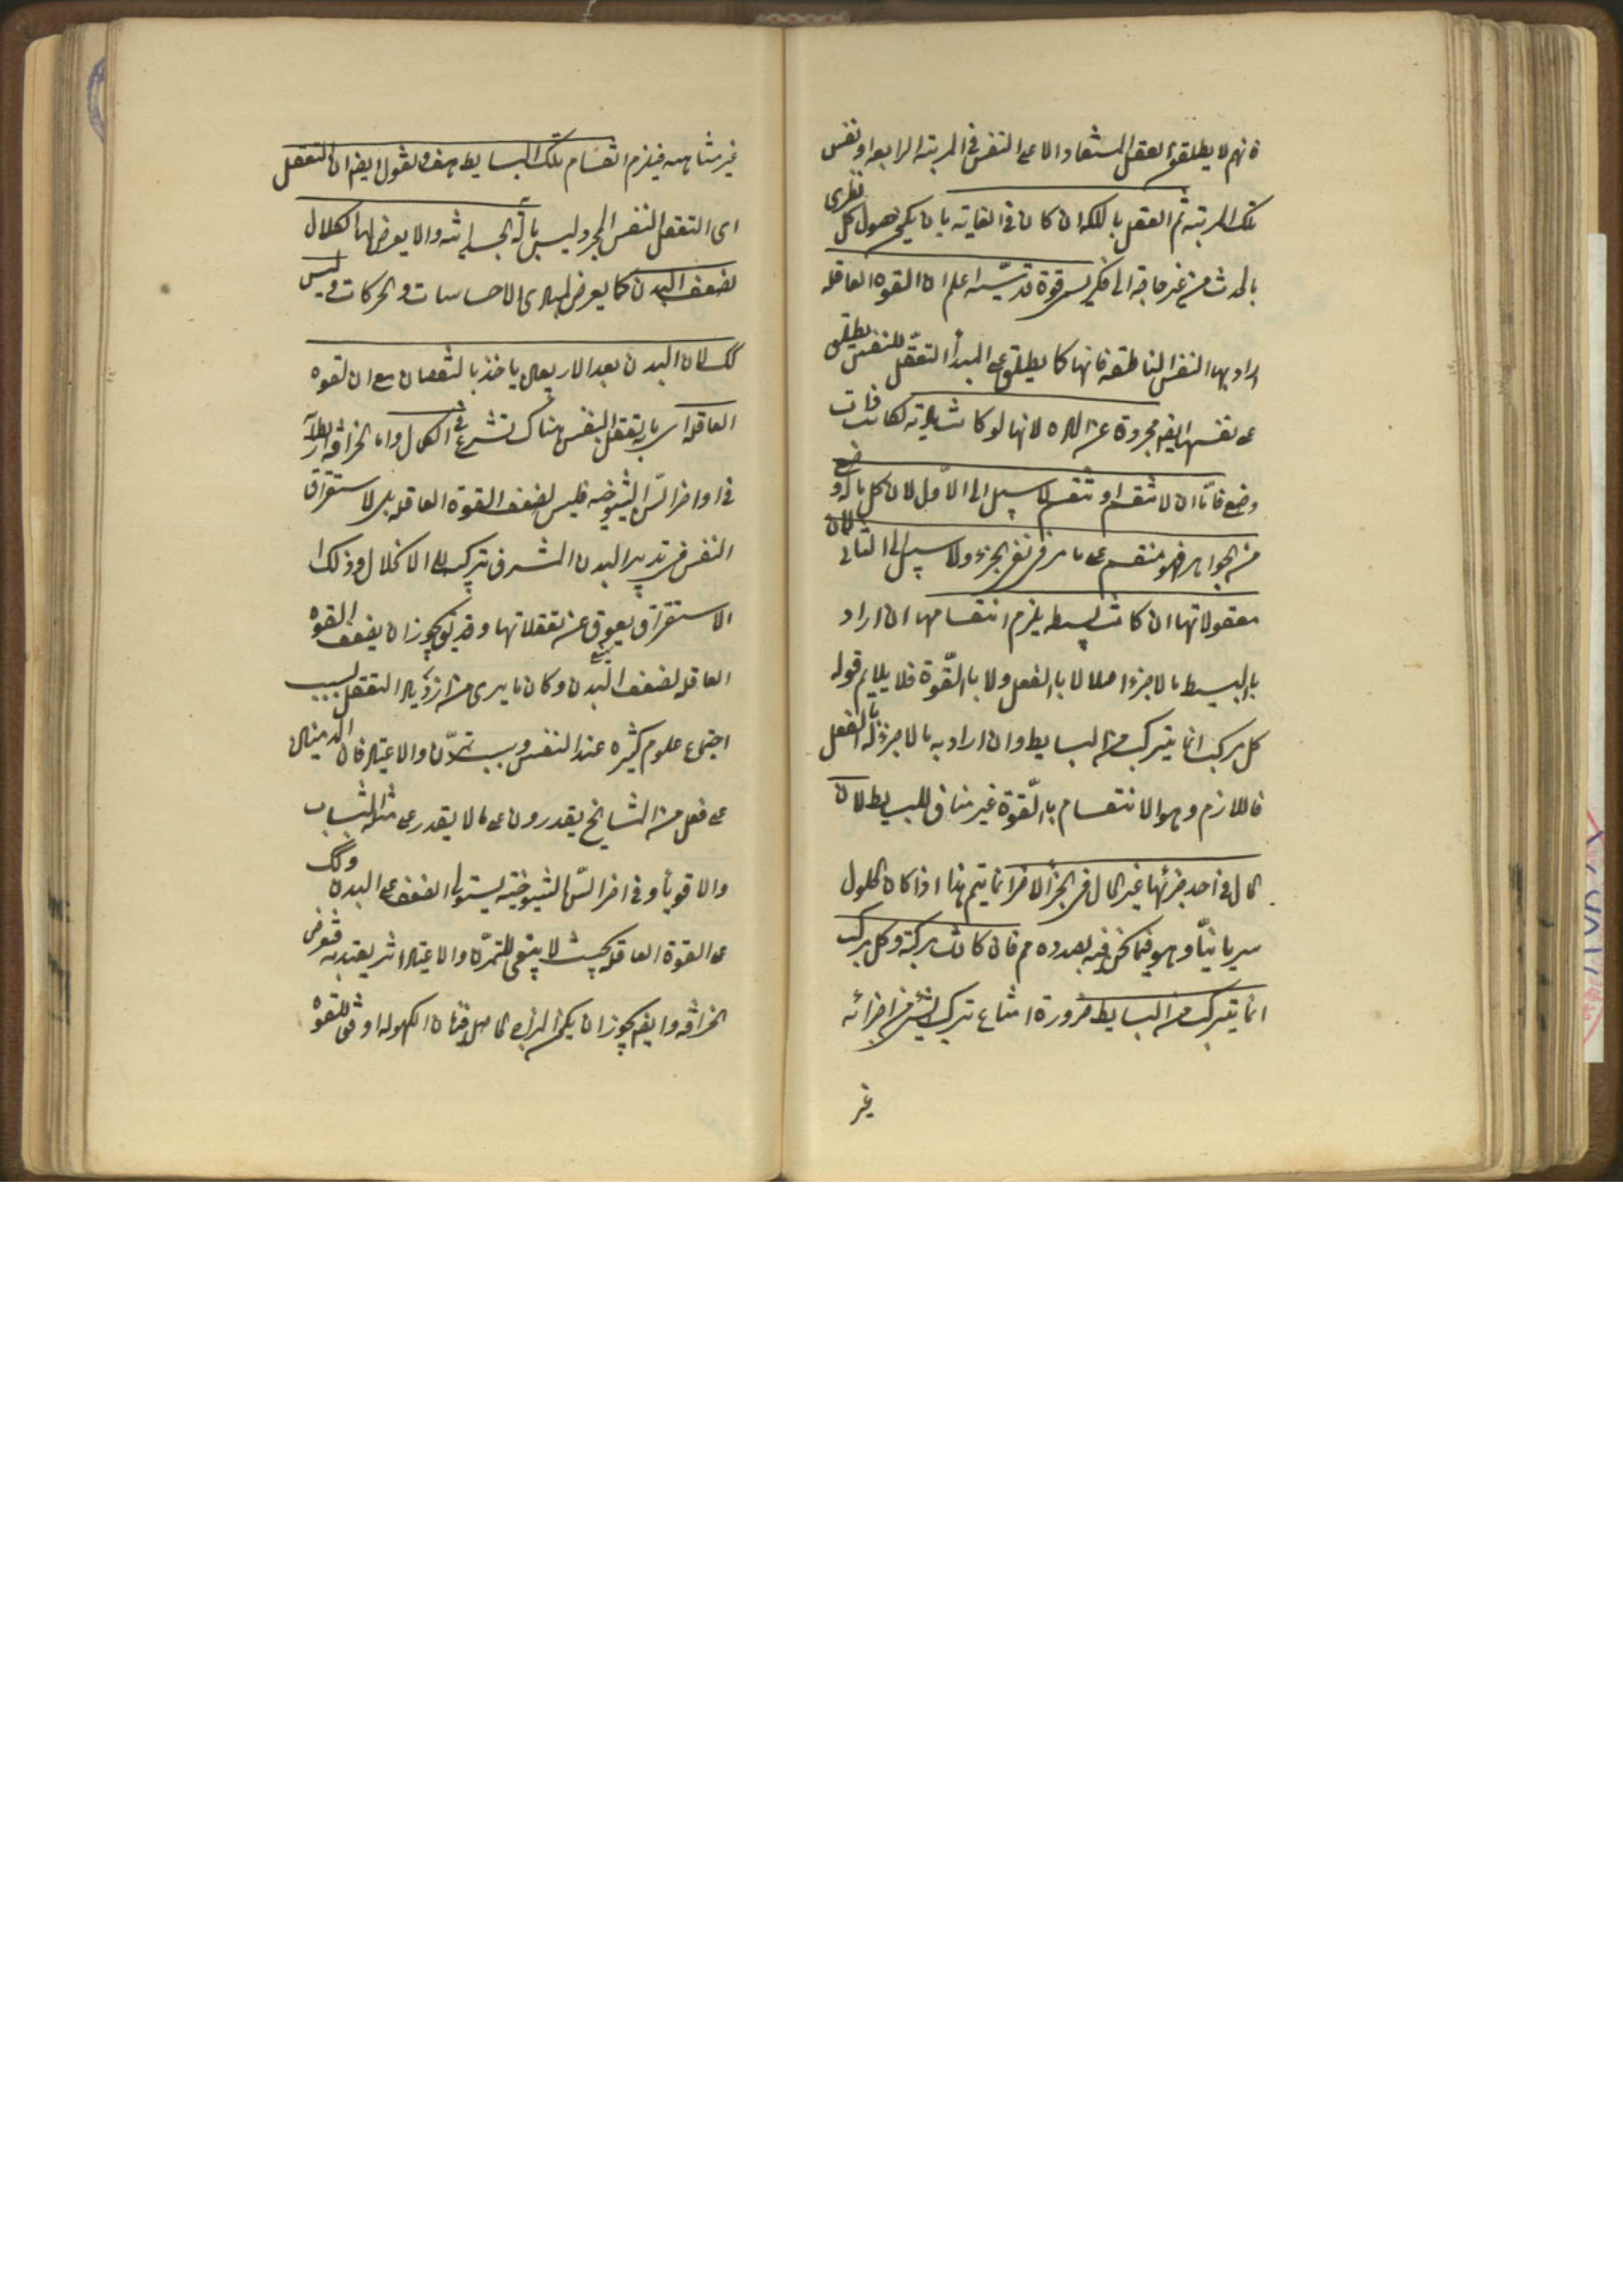 فانهم لا يطلقون العقل المستفاد الا على النفس في المرتبة الرابعة او نفس
تلك المرتبة ثم العقل بالملكة ان كان في الغاية بان يكون حصول كل نظرى
بالحدث من غير حاجة الى فكر يسمى قوة قدسيّة اعلم ان القوة العاقلة
اراد بها النفس الناطقة فانها كما يطلق على المبدأ التعقّل للنفس يطلق
على نفسها ايضه مجردة عن المادة لانها لو كانت مادية لكانت ذات
وضع فامّا ان لا تنقسم او تنقسم لا سبيل الى الاوّل لان كل ماله وضع
من الجواهر فهو منقسم على ما مر في نفى الجزء ولا سبيل الى الثانى لان
معقولاتها ان كانت بسيطه يلزم انقسامها ان اراد
بالبسيط ما لا جزء له اصلا لا بالفعل ولا بالقّوة فلا يلايم قوله
كل مركب انما يتركب من البسايط وان اراد به ما لا جزء له بالفعل
فاللازم وهو الانقسام بالقّوة غير مناف للبسيط لان
الحال في احد جزئها غير الحال في الجزء الاخر انما يتم هذا اذا كان الحلول
سريانيّا وهو فيما نحن فيه بصدده مم فان كانت مركبة وكل مركب
انما يتركب من البسايط ضرورة امتناع تركب الشئ من اجزائه
غير
غير متناهيه فيلزم انقسام تلك البسايط هف ونقول ايضه ان التعقل
اى التعقل النفس المجرد ليس بالة الجسمانية والا يعرض لها الكلال
لضعف البدن كما يعرض لمبادى الاحساسات والحركات وليس
كك لان البدن بعد الاربعين ياخذ بالنقصان مع ان القوة
العاقلة اى ما به تعقل النفس هناك تشرع في الكمال واما الخرافة الطارية
في اواخر السّن الشيوخيه فليس لضعف القوة العاقلة بل لاستغراق
النفس في تدبير البدن المشرف تركيبه الى الانحلال وذلك
الاستغراق يعوق عن تعقلاتها وقد يق يجوز ان يضعف القوة
العاقلة لضعف البدن وكان ما يرى من ازدياد التعقل بسبب
اجتماع علوم كثيره عند النفس وبسبب التمرّن والاعتياد فان المدمنين
على فعل من المشايخ يقدرون على ما لا يقدر على مثله الشباب
والاقوياء وفى اخر السّن الشيوخية يستولى الضعف على البدن وكك
على القوة العاقلة بحيث لا يبقى للتمرّن والاعتياد اثر يعتد به فتعرض
الخرافة وايضه يجوز ان يكون المزاج الحاصل في زمان الكهولة اوفق للقوة